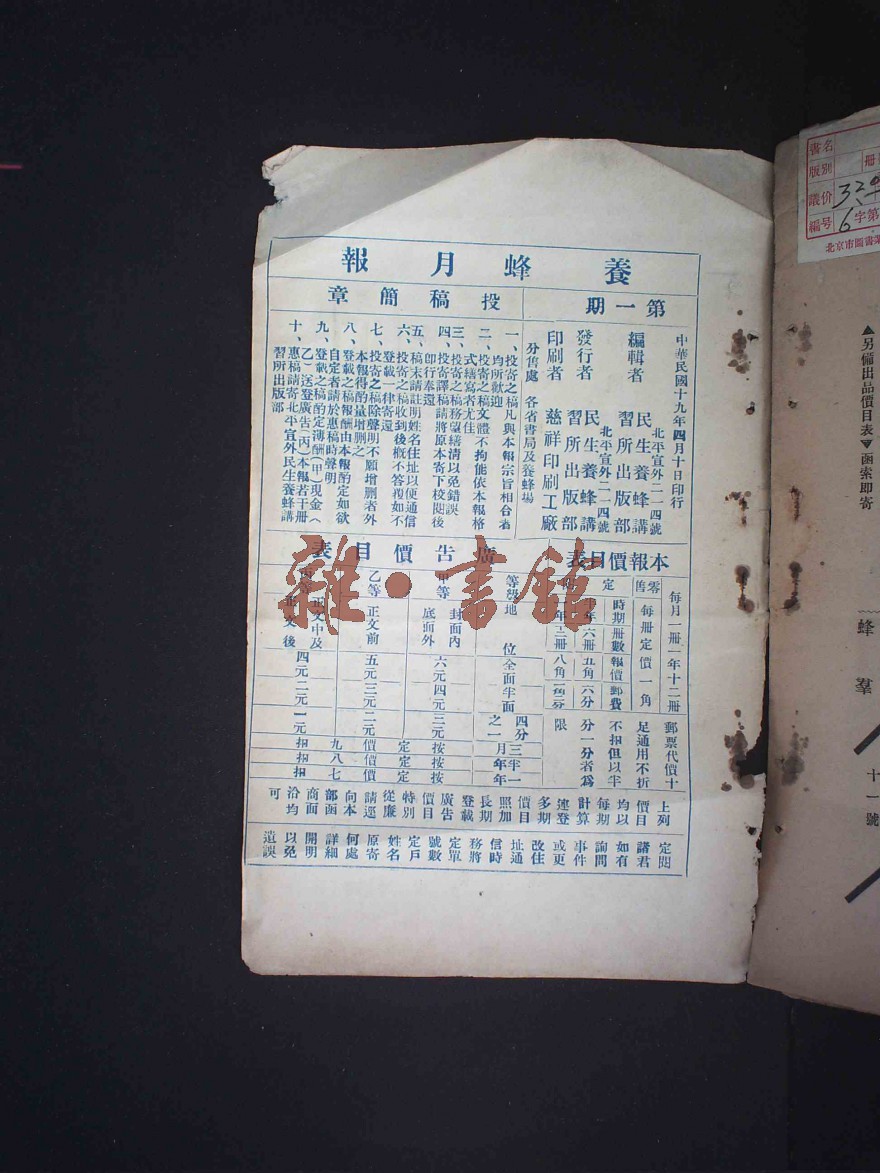 養蜂月報
第一期
中華民國十九年四月十日印行
編輯者
北平宣外二一四號
民生養蜂講
習所出版部
發行者
北平宣外二一四號
民生養蜂講
習所出版部
印刷者
慈祥印刷工廠
分售處 各省書局及養蜂場
投稿簡章
一、投寄之稿凡與本報宗旨相合者
均所歡迎
二、投寄之稿文體不拘能依本報格
式繕寫者尤佳
三、投寄之稿務望繕清以免錯誤
四、投寄譯稿請將原本寄下校閱後
卽行奉還
五、稿末請註明姓名住址以便通信
六、投寄之稿收到後概不答覆如不
登載一律寄還
七、投寄之稿除聲明不願增删者外
本報得酌量增删之
八、登載之稿報酬由本報酌定如欲
自定者請於惠稿時聲明
九、登載之稿酌定薄酬(甲)現金(
乙)送登廣告(丙)本報若干册
十、惠稿請寄北平宣外民生養蜂講
習所出版部
本報價目表
每月一册 年十二册
零售
每册定價一角
定
時期 册數 報價 郵費
年 六册 五角 六分
年 三册 八角
郵票代價十
足通用不折
不扣但以半
分一分者為
限
廣告價目表
等級 地位 全面 半面 四分之一
甲等 封面內 底面外 六元 四元 三元
乙等 正文前 五元 三元 二元
等 正文中及正文後 四元 二元 一元
三月 按定價九扣
半年 按定價八扣
一年 按定價七扣
上列
價目
均以
每期
計算
連登
多期
價目
照加
長期
登載
廣告
價目
特別
從廉
請逕
向本
部函
商面
洽均
可
定閱
諸君
如有
詢問
事件
或更
改住
址通
信時
務將
定單
號數
定戶
姓名
原寄
何處
詳細
開明
以免
遺誤
雜·書館
書名
册
版别
議价
编号
6字第
北京市圖書業
▲另備出品價目表▼函索即寄
蜂羣
十一號